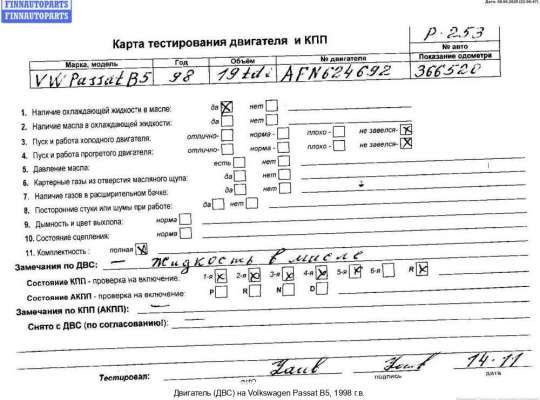 FINNAUTOPARTS
FINNAUTOPARTS
Р-253
Карта тестирования двигателя и КПП
№ авто
Марка, модель Год Объём № двигателя Показание одометра
VW Passat B5 98 19 tdi AFN624692 366520
1. Наличие охлаждающей жидкости в масле: да нет
2. Наличие масла в охлаждающей жидкости: да нет
3. Пуск и работа холодного двигателя: отлично- норма - плохо - не завелся-
4. Пуск и работа прогретого двигателя: отлично- норма - плохо - не завелся-
5. Давление масла: есть нет
6. Картерные газы из отверстия масляного щупа: да нет
7. Наличие газов в расширительном бачке: да нет
8. Посторонние стуки или шумы при работе: да нет
9. Дымность и цвет выхлопа: норма
10. Состояние сцепления: норма
11. Комплектность : полная
Замечания по ДВС: – жидкость в масле
Состояние КПП - проверка на включение: 1-я 2-я 3-я 4-я 5-я 6-я R
Состояние АКПП - проверка на включение: P R N D
Замечания по КПП (АКПП): —
Снято с ДВС (по согласованию!): —
14-11
Тестировал: ФИО подпись дата
Двигатель (ДВС) на Volkswagen Passat B5, 1998 г.в.